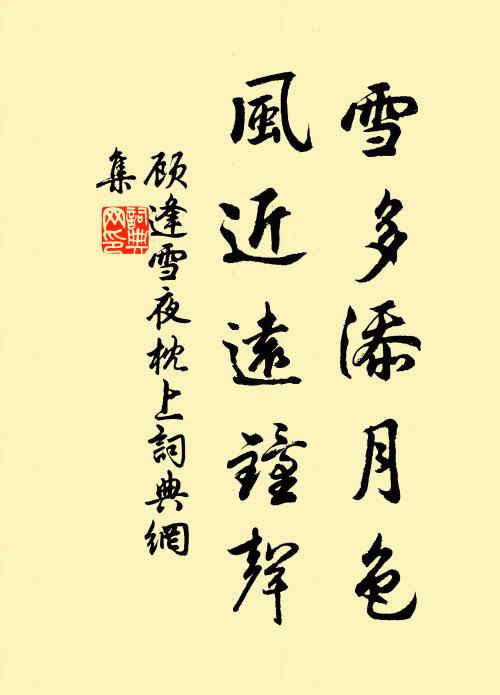 雪多添月色
風近遠鐘聲
顧逢雪夜枕上詞典網
集
詞典
网印